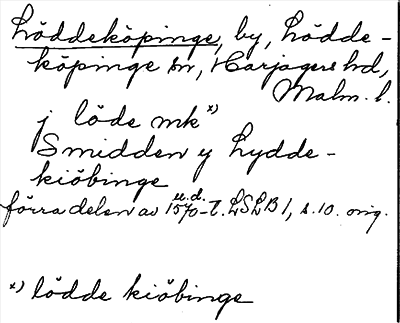 Löddeköpinge, by, Lödde-
köpinge sn, Harjagers hd,
Malm. l.
j löde mk x)
Smidden y Lydde-
kiöbinge
u.d.
förra delen av 1570-t. LSLB 1, s. 10. orig.
x) lödde kiöbinge